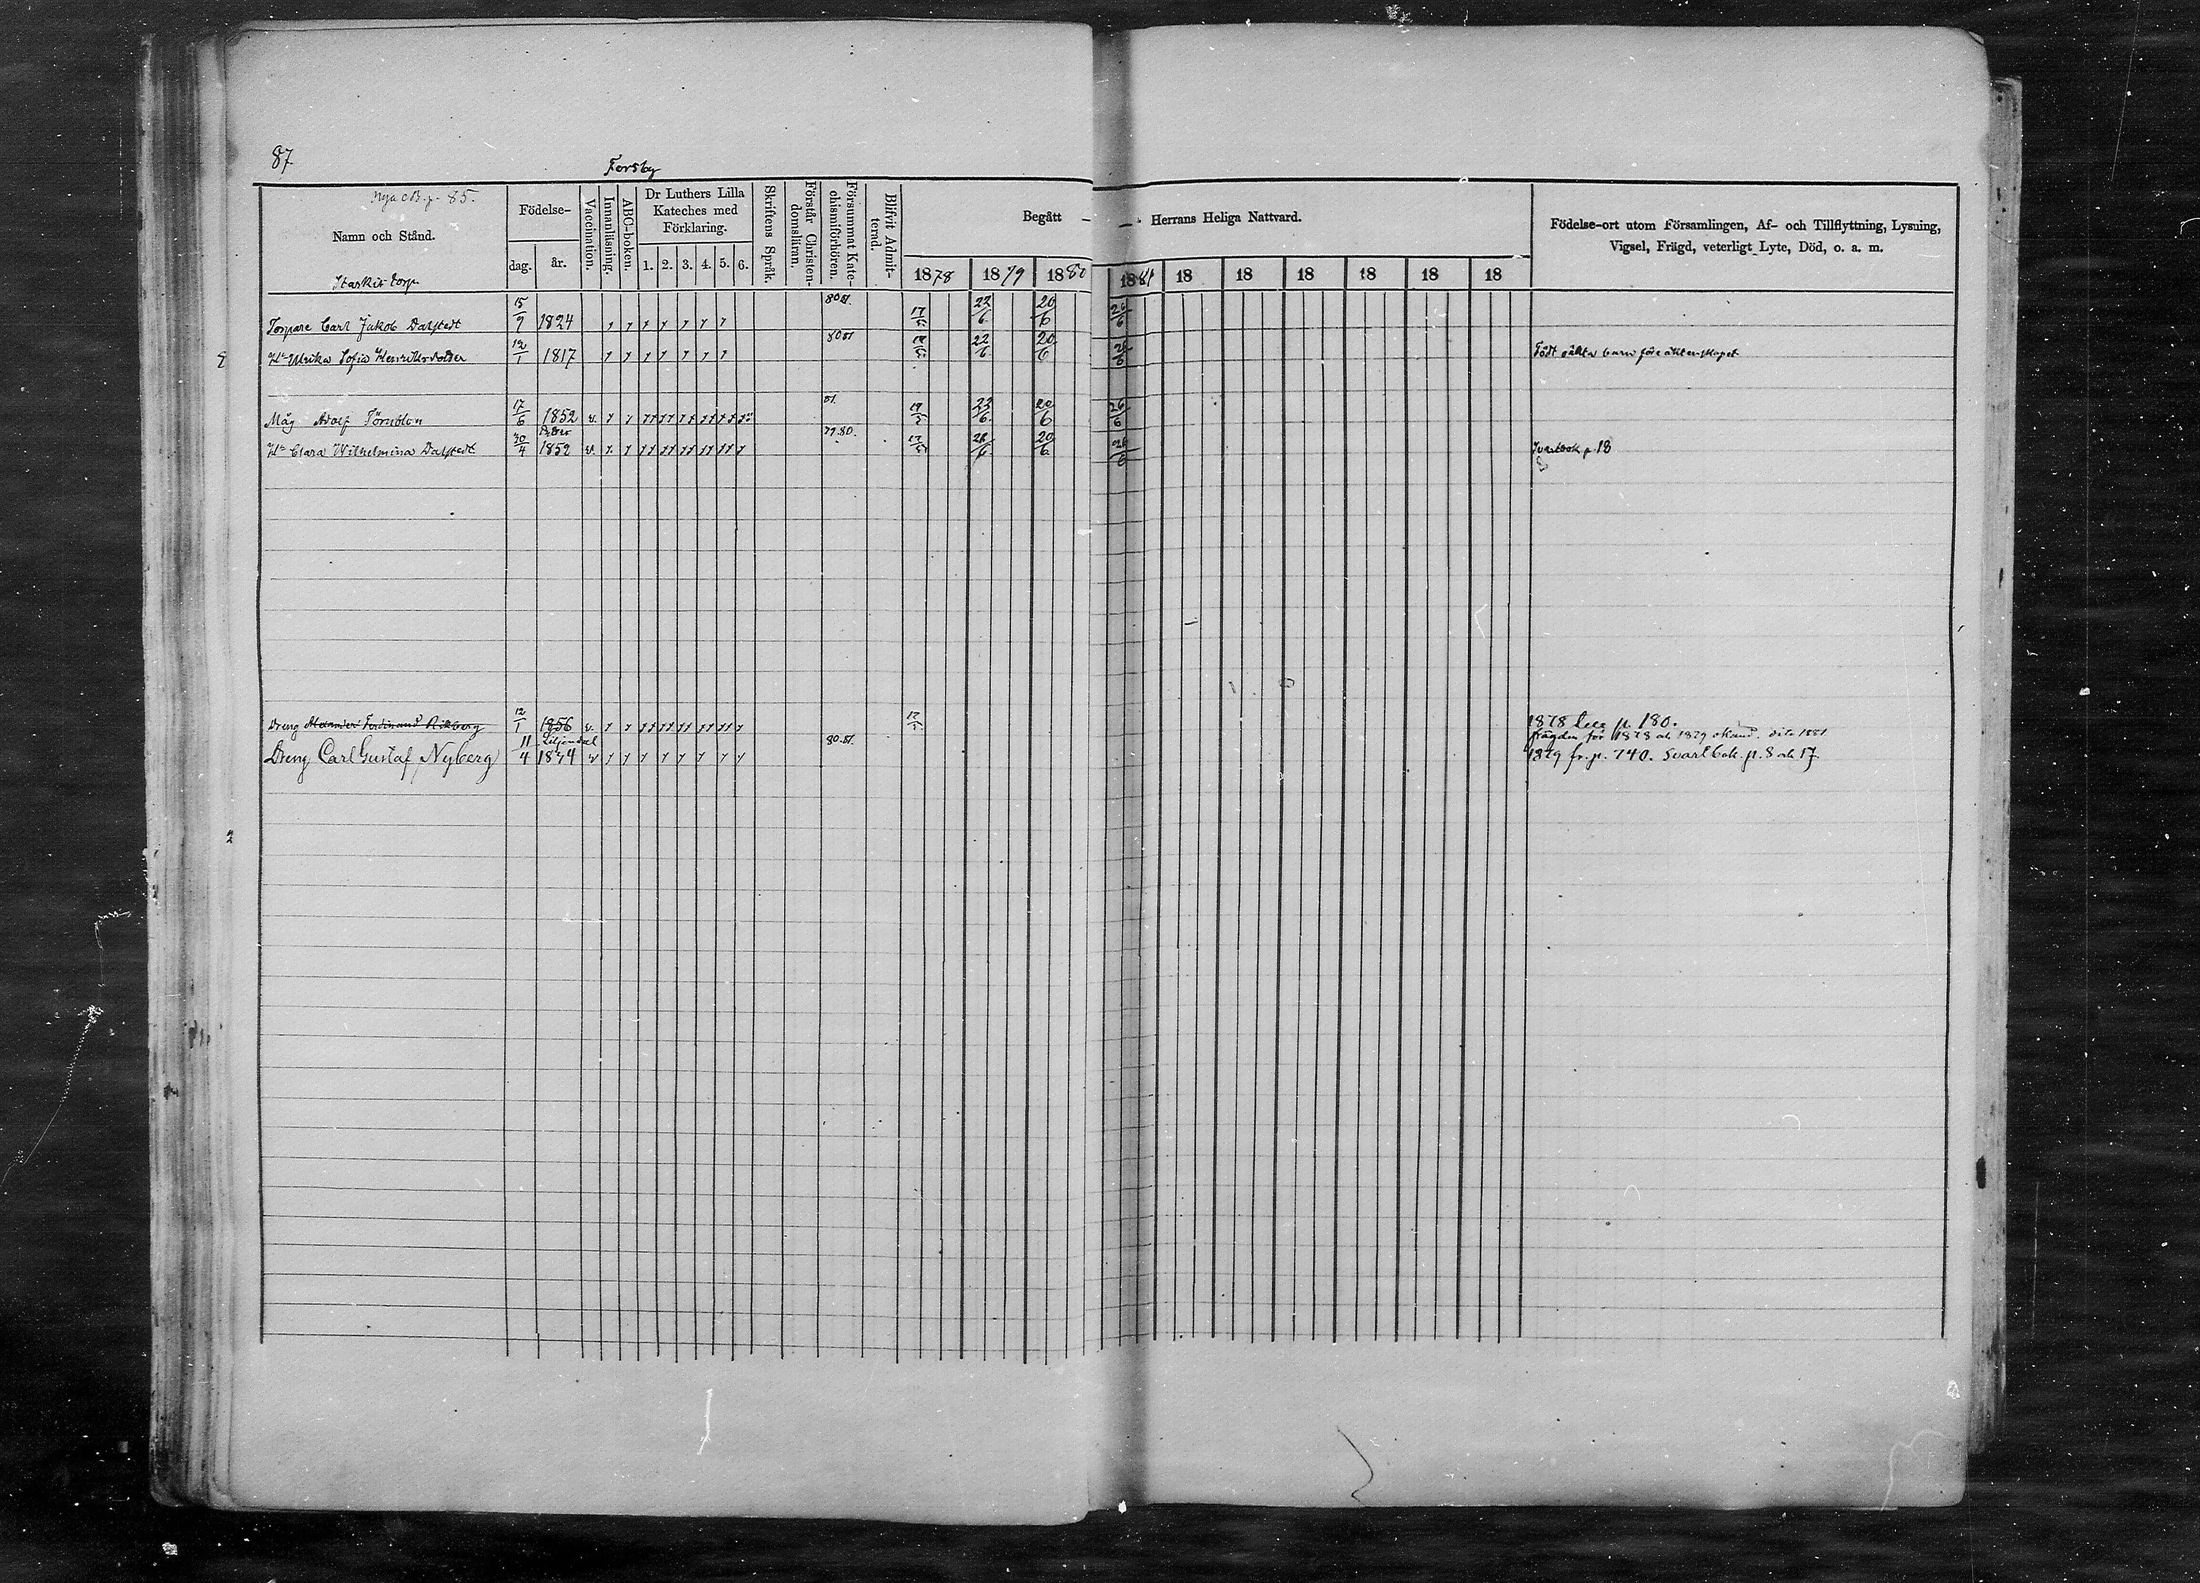 87
Forsby
Nya CB. p. 85.
Namn och Stånd.
Födelse-
dag.
år.
Vaccination.
Innanläsning.
ABC-boken.
Dr Luthers Lilla
Kateches med
Förklaring.
1. 2. 3. 4. 5. 6.
Skriftens Språk.
Förstår Christen-
domsläran.
Försummat Kate-
chismiförhören.
Blifvit Admit-
terad.
Begått
Herrans Heliga Nattvard.
1878 1879 1880 1881 18 18 18 18 18 18
Födelse-ort utom Församlingen, Af- och Tillflyttning, Lysning,
Vigsel, Frägd, veterligt Lyte, Död, o. a. m.
torp
Torpare Carl Jakob Dalstedt 15/9 1824 80 81. 17/5 22/6 20/6 26/6
Hu Ulrika Sofia Henriksdotter 12/1 1817 80 81 22/6 20/6 26/6 Födt oäkta barn före äktenskapet
Måg Adolf Törnblom 17/6 1852 v. 81. 22/6 20/6 26/6
Hu Clara Wilhelmina Dalstedt 30/4 1852 v. 77.80. 17/5 20/6 26/6 Svartbok p. 18
Dreng Alexander Ferdinand Rikberg 12/1 1856 v. 1878 p. 180.
Liljendal 80.81. frägden för 1878 och 1879 okänd. dito 1881
Dreng Carl Gustaf Nyberg 11/4 v 1879 fr. p. 740. Svartbok. p. 8 och 17.